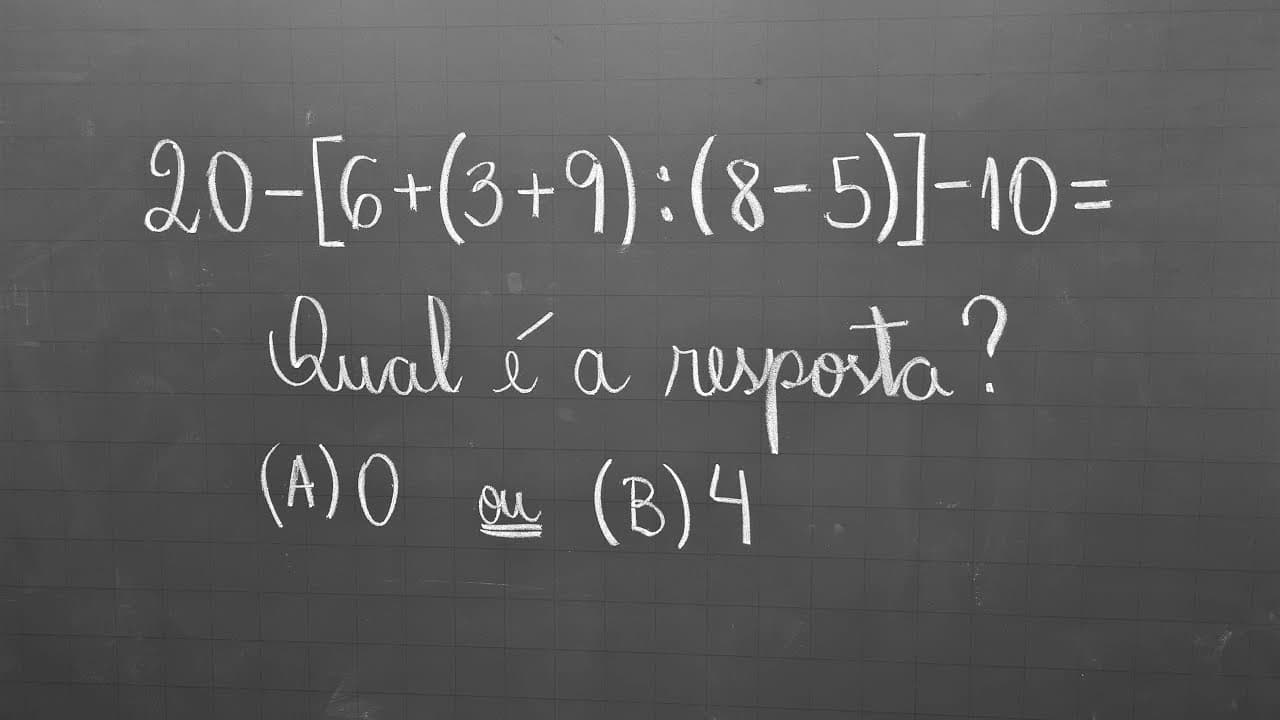 20-[6+(3+9):(8-5)]-10=
Qual é a resposta?
(A) 0 ou (B) 4